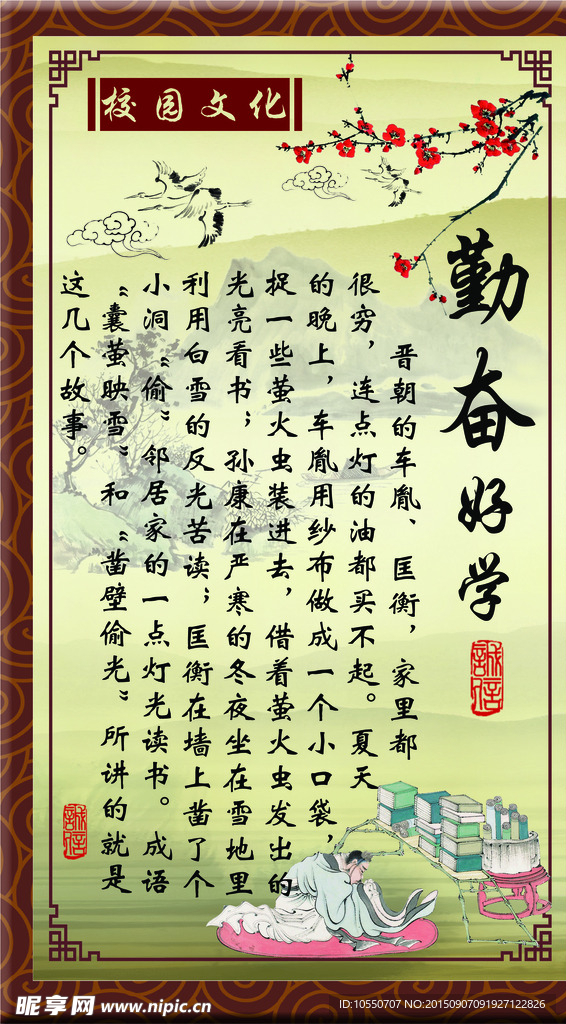 校园文化
勤奋好学
晋朝的车胤、匡衡，家里都
很穷，连点灯的油都买不起。夏天
的晚上，车胤用纱布做成一个小口袋，
捉一些萤火虫装进去，借着萤火虫发出的
光亮看书；孙康在严寒的冬夜坐在雪地里
利用白雪的反光苦读；匡衡在墙上凿了个
小洞“偷”邻居家的一点灯光读书。成语
“囊萤映雪”和“凿壁偷光”所讲的就是
这几个故事。
誠信
誠信
昵享网 www.nipic.cn
ID:10550707 NO:20150907091927122826